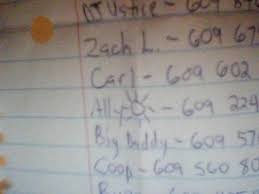 Justice - 609
Zach L. - 609 67
Carl - 609 602
Ally - 609 229
Big Daddy - 609 57
Coop - 609 560 80